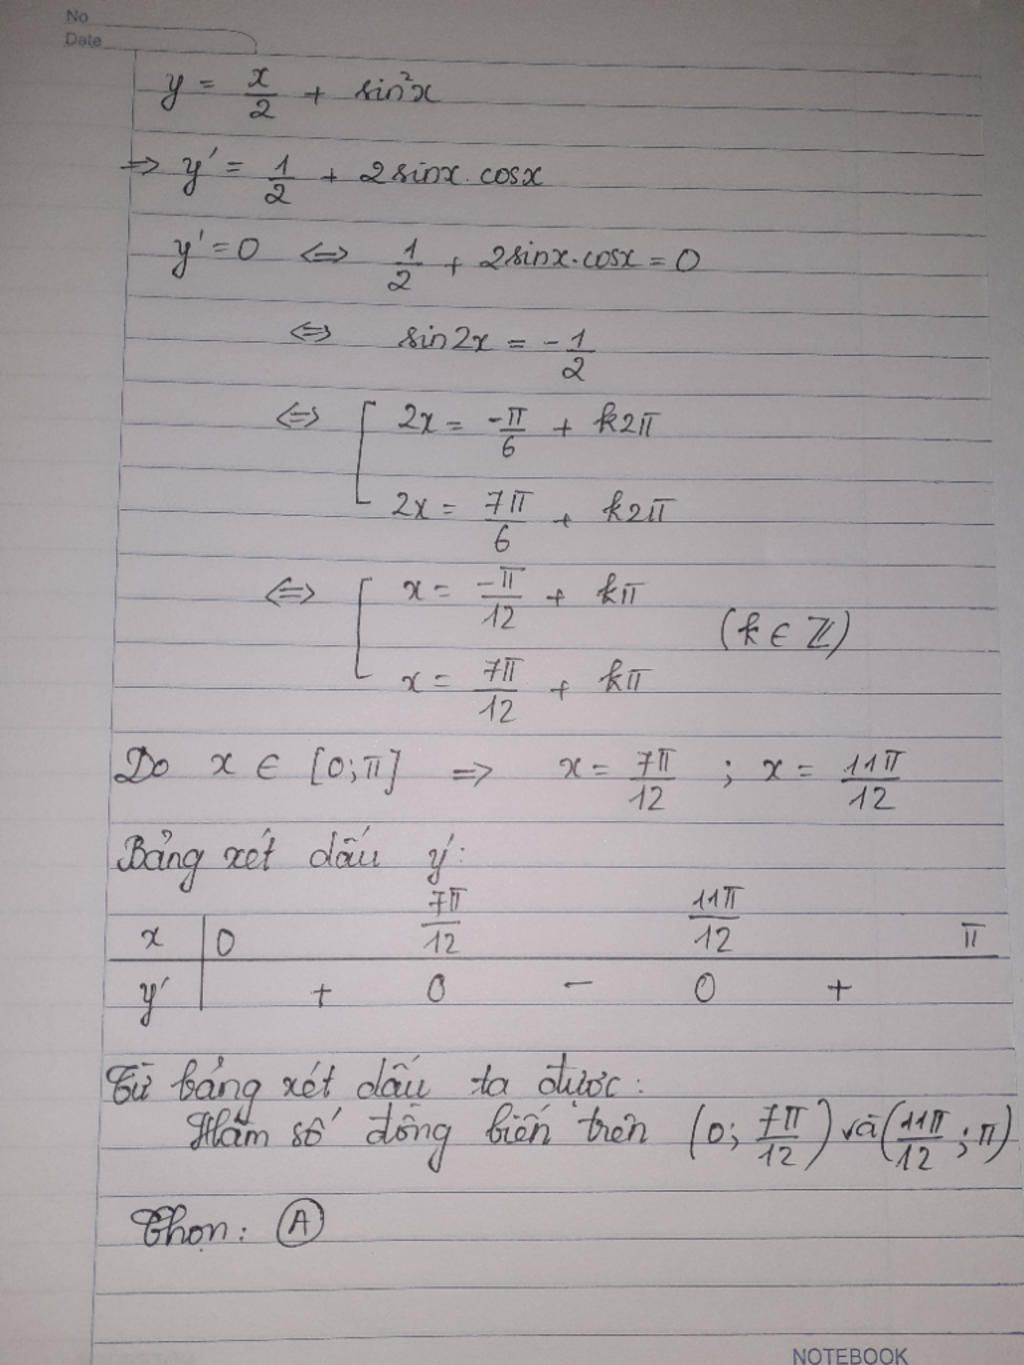 No
Date
y = x/2 + sin²x
=> y' = 1/2 + 2sinx.cosx
y' = 0 <=> 1/2 + 2sinx.cosx = 0
<=> sin2x = -1/2
<=> [ 2x = -π/6 + k2π
2x = 7π/6 + k2π
<=> [ x = -π/12 + kπ
(k ∈ ℤ)
x = 7π/12 + kπ
Do x ∈ [0;π] => x = 7π/12 ; x = 11π/12
Bảng xét dấu y':
x | 0 7π/12 11π/12 π
y' | + 0 - 0 +
Từ bảng xét dấu ta được:
Hàm số đồng biến trên (0; 7π/12) và (11π/12; π)
Chọn: A
NOTEBOOK